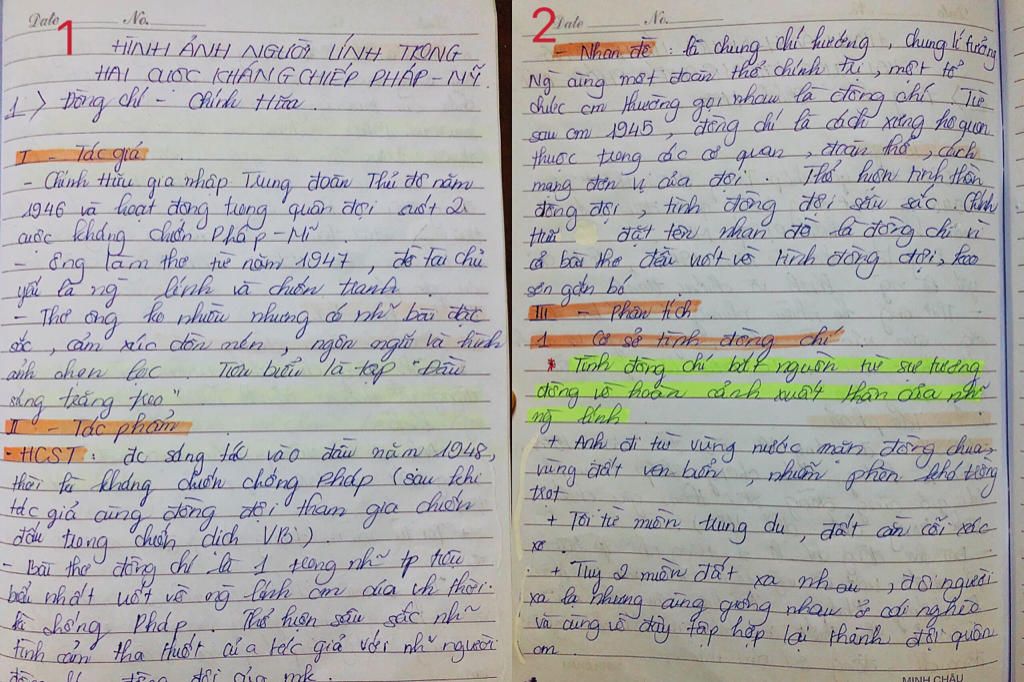 Date No.
1
HÌNH ẢNH NGƯỜI LÍNH TRONG
HAI CUỘC KHÁNG CHIẾP PHÁP - MỸ
1> Đồng chí - Chính Hữu.
I - Tác giả
- Chính Hữu gia nhập Trung đoàn Thủ đô năm
1946 và hoạt động trong quân đội suốt 2
cuộc kháng chiến Pháp - Mĩ
- Ông làm thơ từ năm 1947, đề tài chủ
yếu là ng lính và chiến tranh.
- Thơ ông ko nhiều nhưng có nh~ bài đặc
sắc, cảm xúc dồn nén, ngôn ngữ và hình
ảnh chọn lọc. Tiêu biểu là tập "Đầu
súng trăng treo"
II - Tác phẩm
- HCST: đc sáng tác vào đầu năm 1948,
thời kì kháng chiến chống Pháp (sau khi
tác giả cùng đồng đội tham gia chiến
đấu trong chiến dịch VB)
- Bài thơ đồng chí là 1 trong nh~ tp tiêu
biểu nhất viết về ng lính cm của vh thời
kì chống Pháp. Thể hiện sâu sắc nh~
tình cảm tha thiết của tác giả với nh~ người
đồng đội của mk.
2
Date No.
- Nhan đề: là chung chí hướng, chung lí tưởng
Ng cùng một đoàn thể chính trị, một tổ
chức cm thường gọi nhau là đồng chí. Từ
sau cm 1945, đồng chí là cách xưng hô quen
thuộc trong các cơ quan, đoàn thể, cách
mạng đơn vị của đội. Thể hiện tinh thần
đồng đội, tình đồng đội sâu sắc. Chính
Hữu đặt tên nhan đề là đồng chí vì
cả bài thơ đều viết về tình đồng đội, keo
sơn gắn bó
III - Phân tích
1 Cơ sở tình đồng chí
* Tình đồng chí bắt nguồn từ sự tương
đồng về hoàn cảnh xuất thân của nh~
ng lính
+ Anh đi từ vùng nước mặn đồng chua,
vùng đất ven biển, nhiễm phèn khó trồng
trọt
+ Tôi từ miền trung du, đất cằn cỗi xác
xơ.
+ Tuy 2 miền đất xa nhau, đôi người
xa lạ nhưng cùng giống nhau ở cái nghèo
và cùng về đây tập hợp lại thành đội quân
cm.
MINH CHÂU